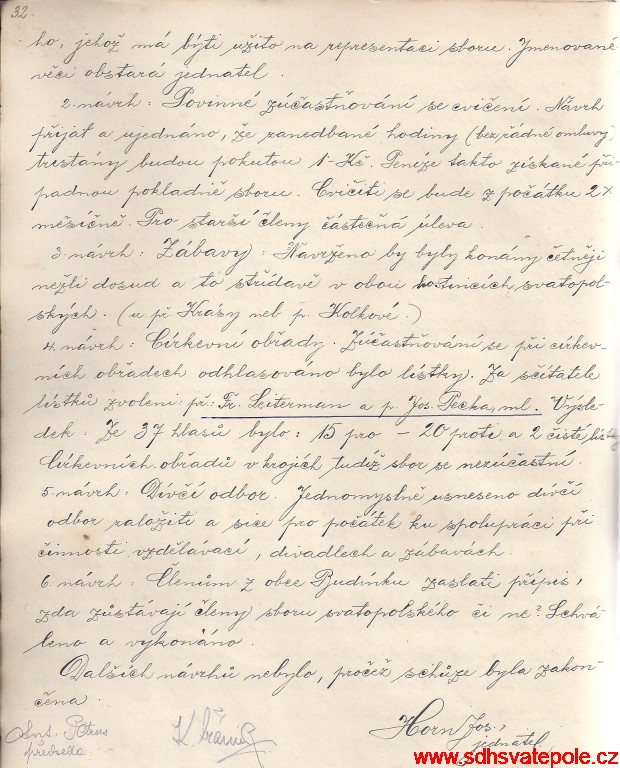 32.
ho, jehož má býti užito na representaci sboru. Jmenované
věci obstará jednatel.
2. návrh: Povinné zúčastňování se cvičení. Návrh
přijat a ujednáno, že zanedbané hodiny (bez řádné omluvy)
trestány budou pokutou 1-Kč. Peníze takto získané při-
padnou pokladně sboru. Cvičiti se bude z počátku 2x
měsíčně. Pro starší členy částečná úleva.
3. návrh: Zábavy: Navrženo by byly konány četněji
nežli dosud a to střídavě v obou hostincích svatopol-
ských. (u př. Krásy neb p. Kolkové.)
4. návrh: Církevní obřady. Zúčastňování se při církev-
ních obřadech odhlasováno bylo lístky. Za sčitatele
lístků zvoleni př: Fr. Leiterman a p. Jos. Pecka, ml. Výsle-
dek: Ze 37 hlasů bylo: 15 pro - 20 proti a 2 čisté lístky
Církevních obřadů v krojích tudíž sbor se nezúčastní.
5. návrh: Dívčí odbor. Jednomyslně usneseno dívčí
odbor založiti a sice pro počátek ku spolupráci při
činnosti vzdělávací, divadlech a zábavách.
6. návrh: Členům z obce Budínku zaslati přípis,
zda zůstávají členy sboru svatopolského či ne? Schvá-
leno a vykonáno.
Dalších návrhů nebylo, pročež schůze byla zakon-
čena.
Ant. Petrus
předseda
Horn Jos.,
jednatel.
www.sdhsvatepole.cz